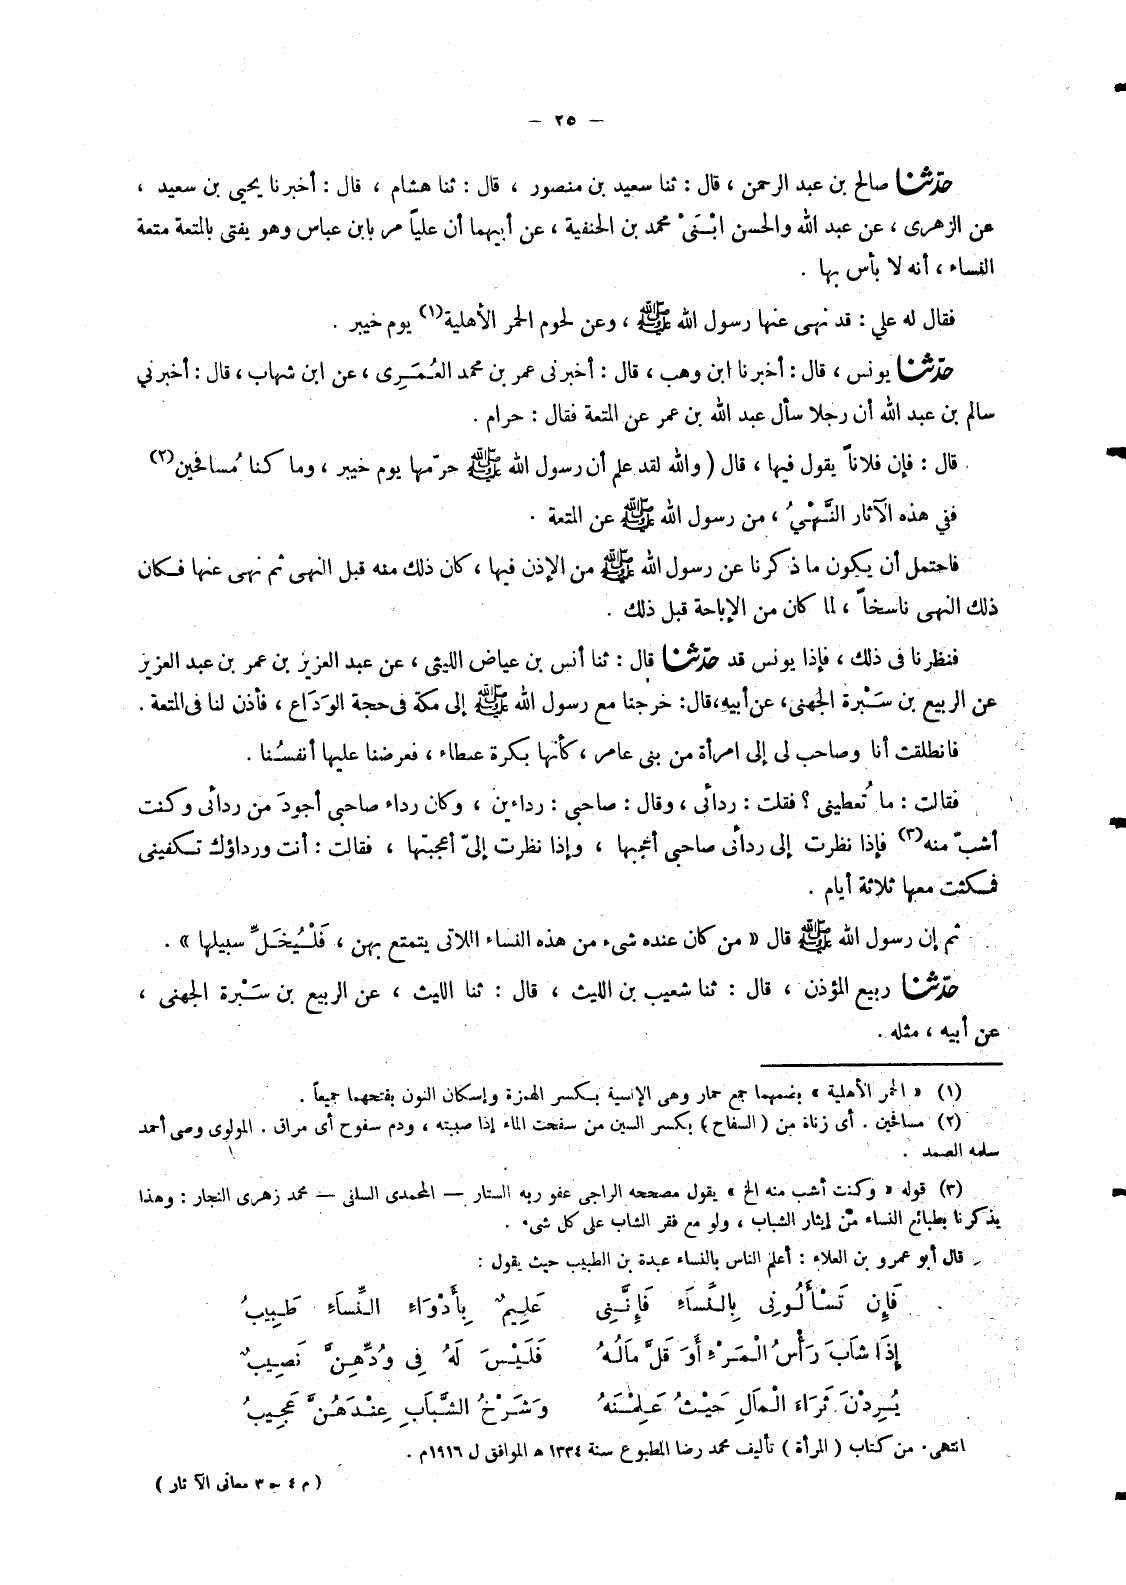 — ٢٥ —
حدّثنا صالح بن عبد الرحمن ، قال : ثنا سعيد بن منصور ، قال : ثنا هشام ، قال : أخبرنا يحيى بن سعيد ،
عن الزهرى ، عن عبد الله والحسن ابْـنَىْ محمد بن الحنفية ، عن أبيهما أن علياً مر بابن عباس وهو يفتى بالمتعة متعة
النساء ، أنه لا بأس بها .
فقال له علي : قد نهى عنها رسول الله ﷺ ، وعن لحوم الحمر الأهلية(١) يوم خيبر .
حدّثنا يونس ، قال : أخبرنا ابن وهب ، قال : أخبرنى عمر بن محمد العُـمَـرِى ، عن ابن شهاب ، قال : أخبرني
سالم بن عبد الله أن رجلا سأل عبد الله بن عمر عن المتعة فقال : حرام .
قال : فإن فلاناً يقول فيها ، قال ( والله لقد علم أن رسول الله ﷺ حرّمها يوم خيبر ، وما كنا مُسافحين(٢)
ففي هذه الآثار النَّـهْـيُ ، من رسول الله ﷺ عن المتعة .
فاحتمل أن يكون ما ذكرنا عن رسول الله ﷺ من الإذن فيها ، كان ذلك منه قبل النهى ثم نهى عنها فـكان
ذلك النهى ناسخاً ، لما كان من الإباحة قبل ذلك .
فنظرنا فى ذلك ، فإذا يونس قد حدّثنا قال : ثنا أنس بن عياض الليثى ، عن عبد العزيز بن عمر بن عبد العزيز
عن الربيع بن سَـبْـرة الجهنى، عن أبيه،قال: خرجنا مع رسول الله ﷺ إلى مكة فى حجة الوَدَاع ، فأذن لنا فى المتعة .
فانطلقت أنا وصاحب لى إلى امرأة من بنى عامر ، كأنها بكرة عيطاء ، فعرضنا عليها أنفسُـنا .
فقالت : ما تُعطينى ؟ فقلت : ردائى ، وقال : صاحبى : رداءين ، وكان رداء صاحبى أجودَ من ردائى وكنت
أشبّ منه(٣) فإذا نظرت إلى ردائى صاحبى أعجبها ، وإذا نظرت إلىّ أعجبتها ، فقالت : أنت ورداؤك تـكفينى
فمـكثت معها ثلاثة أيام .
ثم إن رسول الله ﷺ قال « من كان عنده شىء من هذه النساء اللاتى يتمتع بهن ، فَلْـيُـخَـلِّ سبيلها » .
حدّثنا ربيع المؤذن ، قال : ثنا شعيب بن الليث ، قال : ثنا الليث ، عن الربيع بن سَـبْـرة الجهنى ،
عن أبيه ، مثله .
(١) « الحمر الأهلية » بضمهما جمع حمار وهى الإنسية بـكسر الهمزة وإسكان النون بفتحهما جميعاً .
(٢) مسافحين . أى زناة من ( السفاح ) بكسر السين من سفحت الماء إذا صببته ، ودم سفوح أى مراق . المولوى وصى أحمد
سلمه الصمد .
(٣) قوله « وكنت أشب منه الخ » يقول مصححه الراجى عفو ربه الستار — المحمدى السلفى — محمد زهرى النجار : وهذا
يذكرنا بطبائع النساء من إيثار الشباب ، ولو مع فقر الشاب على كل شىء .
قال أبو عمرو بن العلاء : أعلم الناس بالنساء عبدة بن الطبيب حيث يقول :
فَإِن تَسْـأَلُـونِى بِالنِّسَاءِ فَإِنَّـنِى عَلِـيمٌ بِأَدْوَاءِ النِّسَاءِ طَـبِيبُ
إِذَا شَابَ رَأْسُ الْـمَـرْءِ أَوْ قَلَّ مَالُـهُ فَلَيْـسَ لَهُ فِى وُدِّهِـنَّ نَصِيبُ
يُـرِدْنَ ثَرَاءَ الْـمَالِ حَيْـثُ عَـلِمْـنَهُ وَشَـرْخُ الشَّـبَابِ عِنْـدَهُـنَّ عَجِيبُ
انتهى. من كتاب ( المرأة ) تأليف محمد رضا المطبوع سنة ١٣٣٤ ه الموافق ل ١٩١٦م .
( م ٤ ـ ج ٣ معانى الآثار )